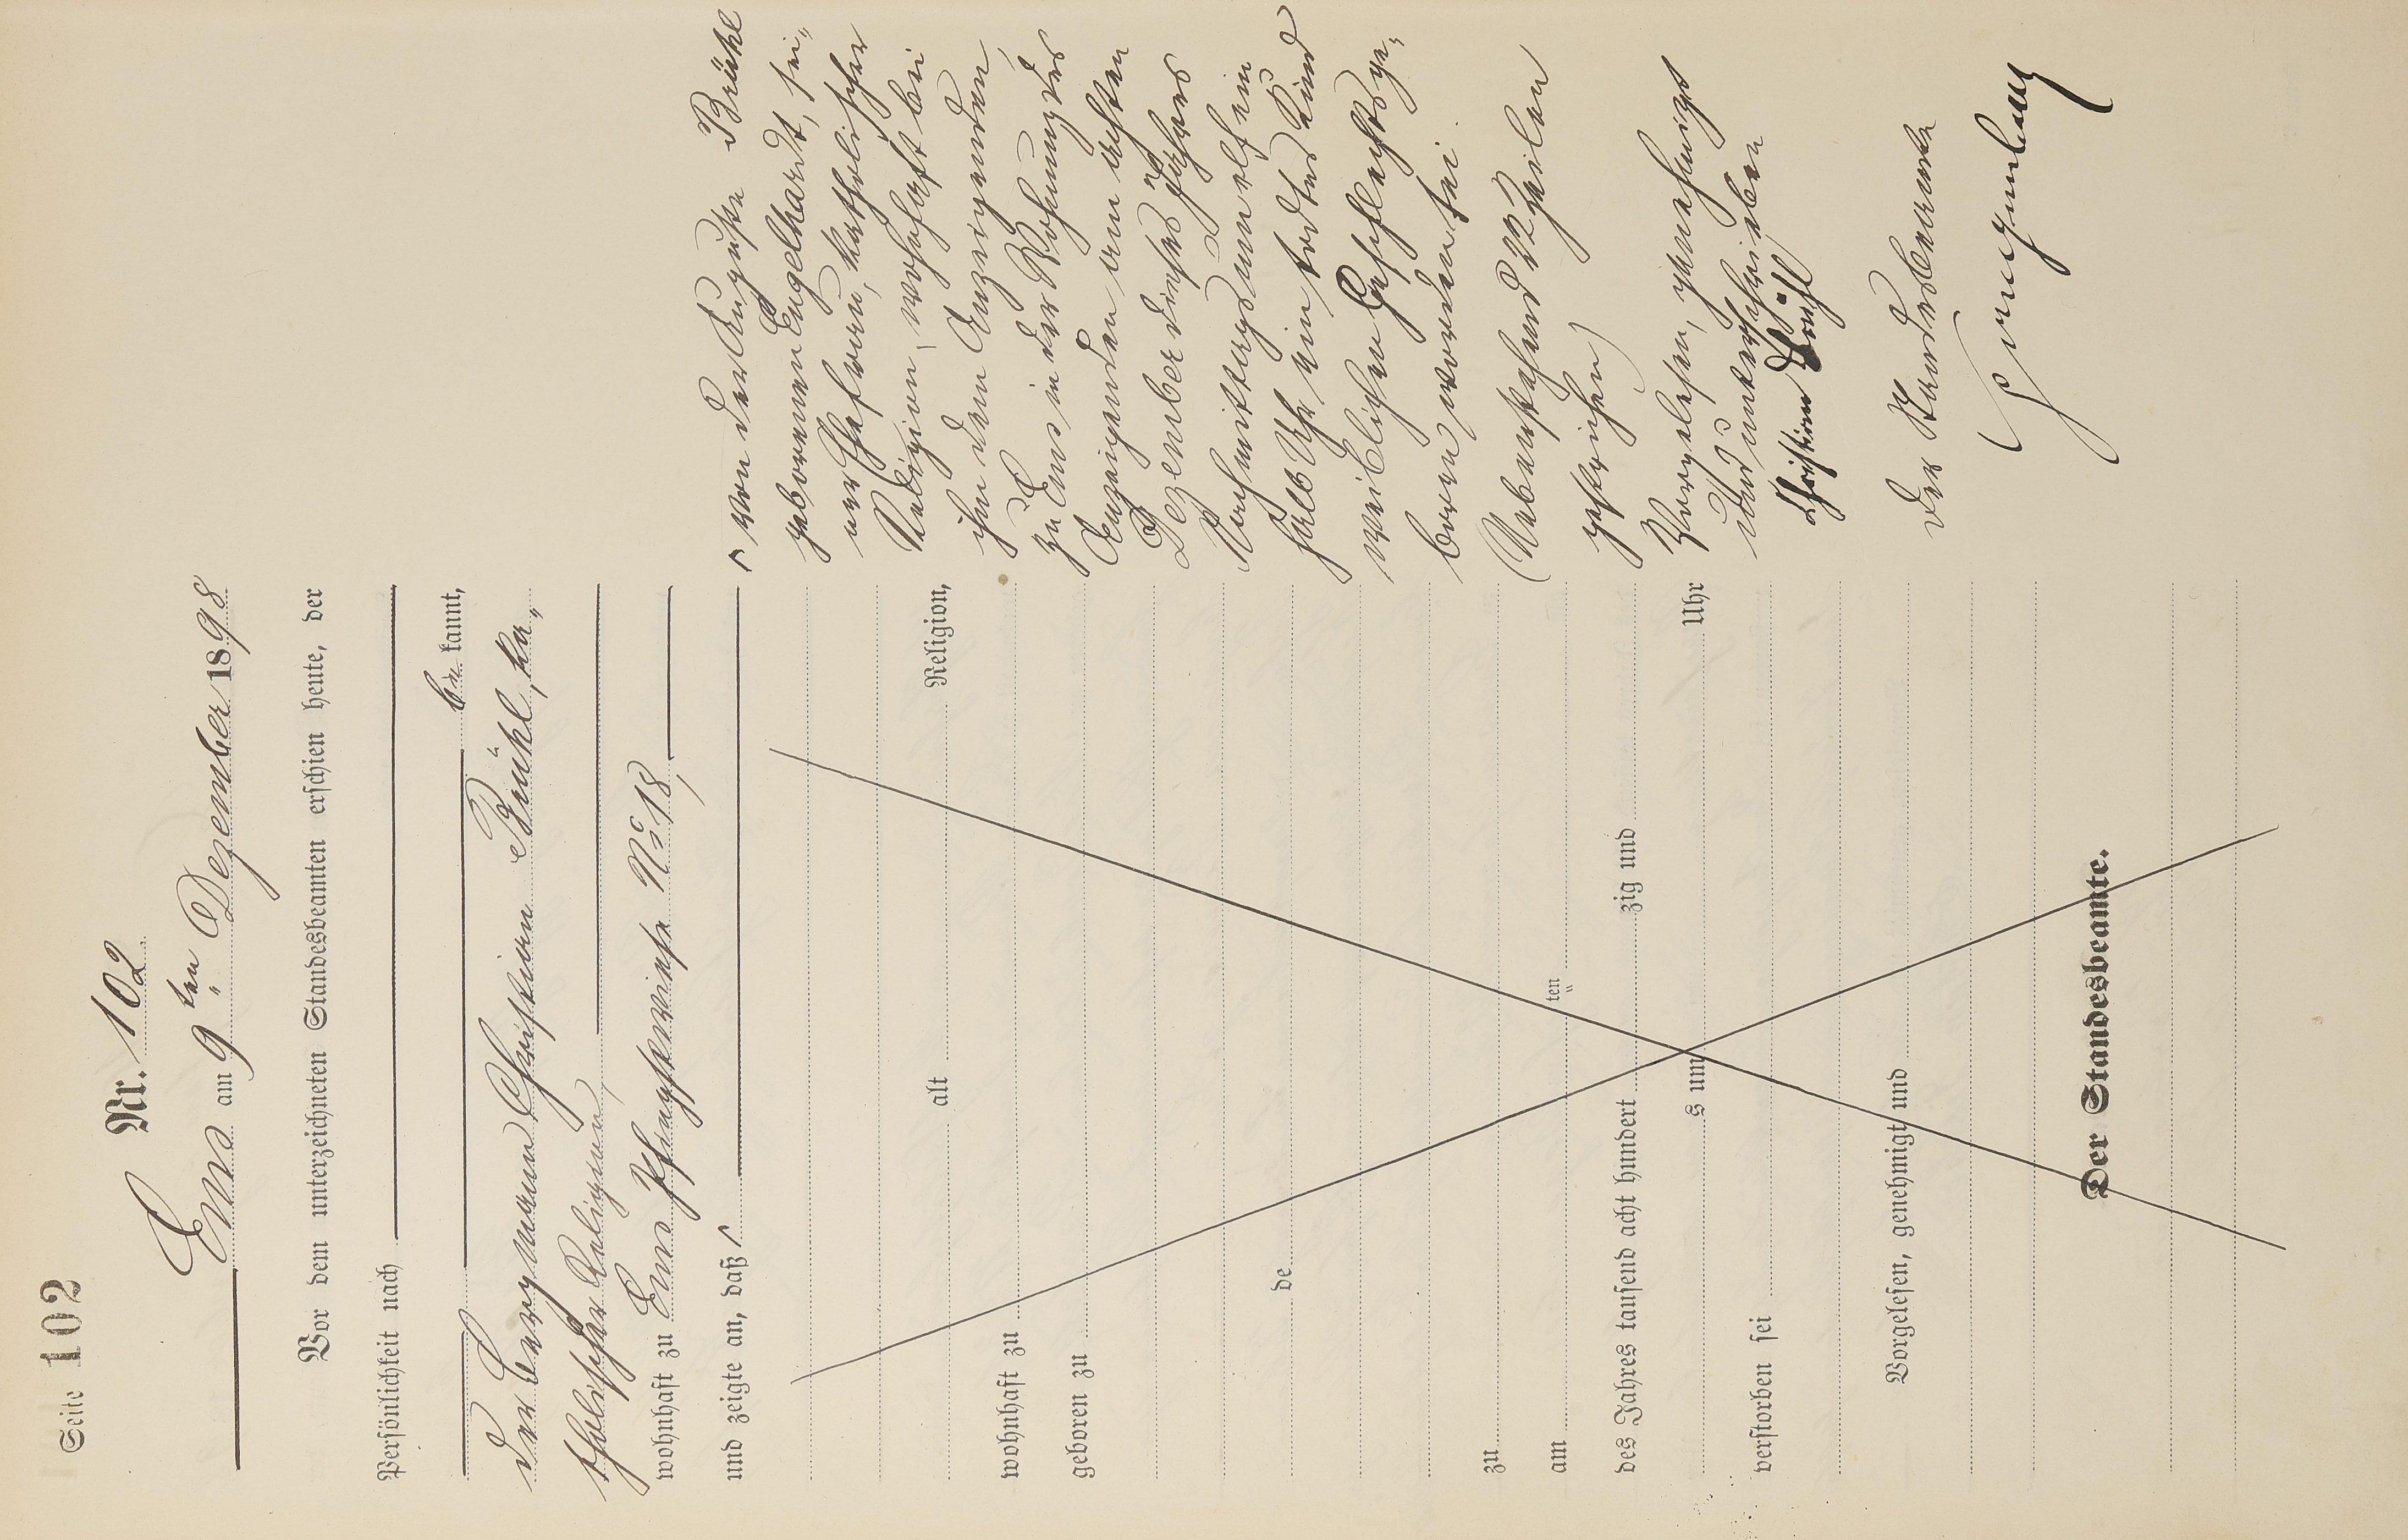 Seite 102
Nr. 102
Ems am 9ten Dezember 1898
Vor dem unterzeichneten Standesbeamten erschien heute, der
Persönlichkeit nach
be kannt,
der Bergmann Christian Brühl, ka„
tholischer Religion,
wohnhaft zu Ems Pfingstwiese No 18,
und zeigte an, daß ⌈
alt Religion,
wohnhaft zu
geboren zu
de
zu
am ten
des Jahres tausend acht hundert zig und
s um Uhr
verstorben sei
Vorgelesen, genehmigt und
Der Standesbeamte.
⌈ von der Auguste Brühl
geborenen Engelhardt, sei„
ner Ehefrau, katholischer
Religion, wohnhaft bei
ihm dem Anzeigenden,
zu Ems in der Wohnung des
Anzeigenden am achten
Dezember dieses Jahres
Nachmittags um elfein
halb Uhr ein todtes Kind
weiblichen Geschlechts ge„
boren worden sei.
(Nebenstehend 22 Zeilen
gestrichen)
Vorgelesen, genehmigt
und unterschrieben
Christian Brühl
Der Standesbeamte